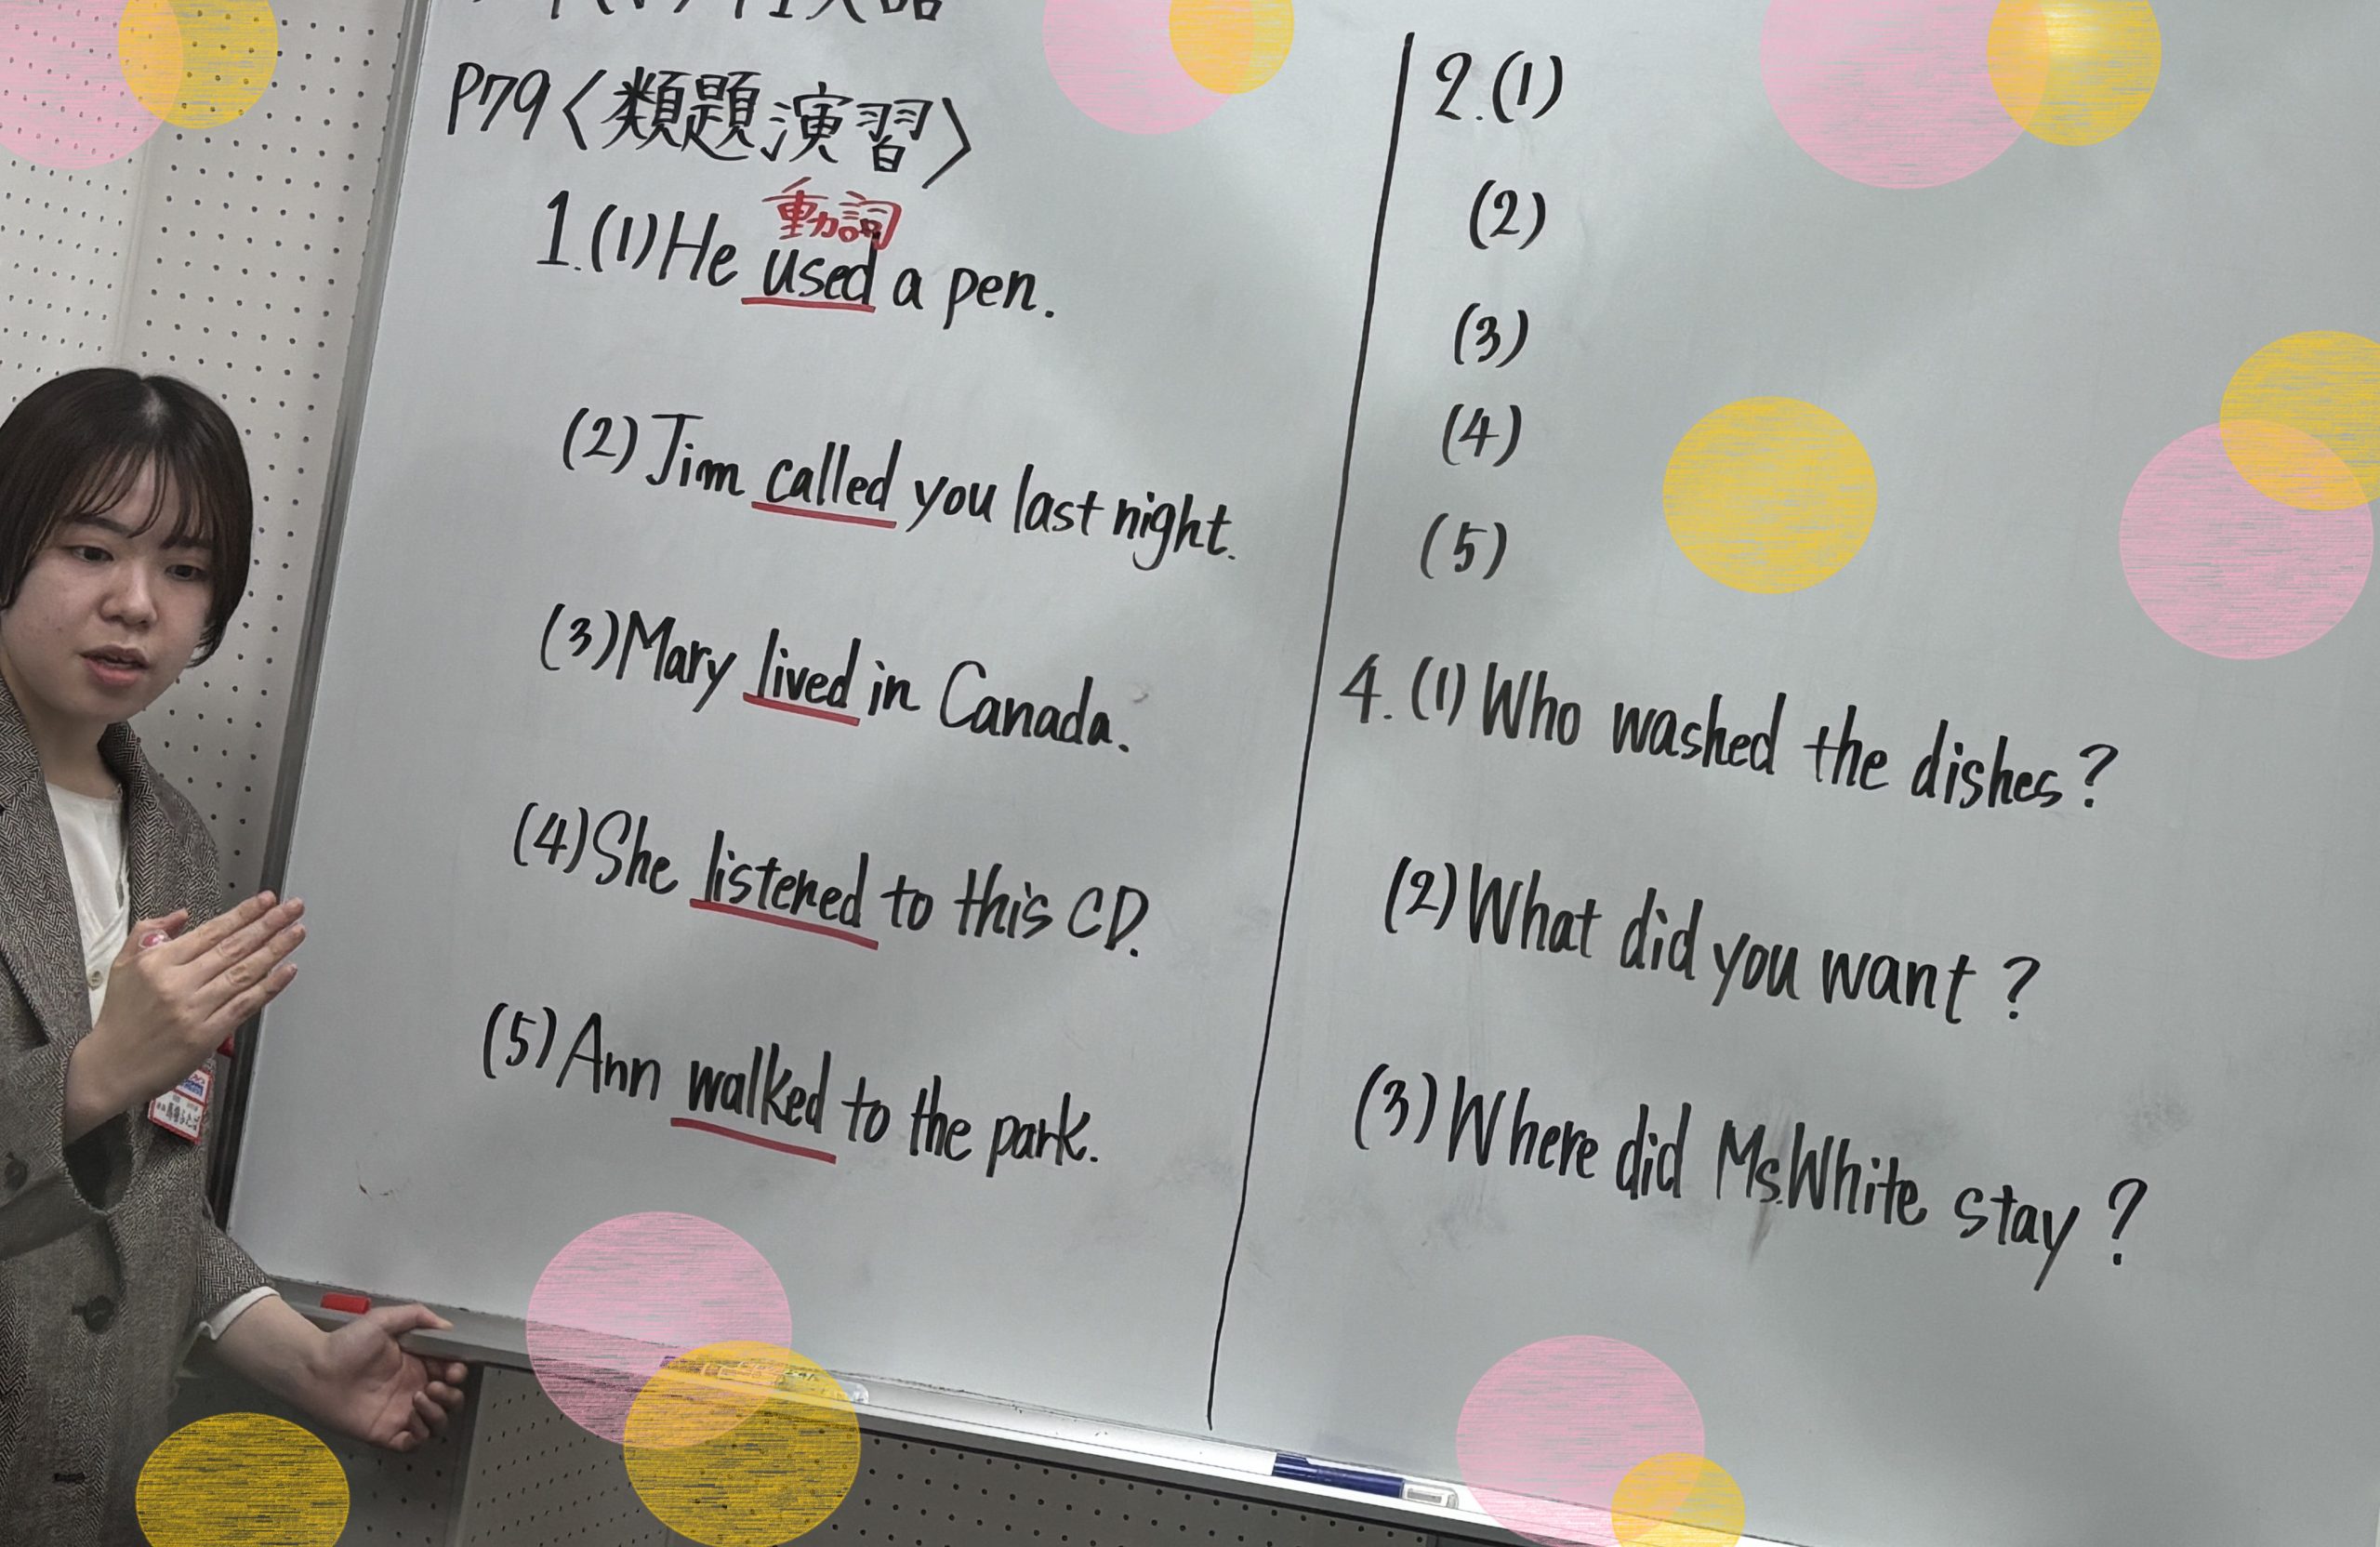 P79〈類題演習〉
動詞
1.(1)He used a pen.
(2)Jim called you last night.
(3)Mary lived in Canada.
(4)She listened to this CD.
(5)Ann walked to the park.
2.(1)
(2)
(3)
(4)
(5)
4.(1)Who washed the dishes?
(2)What did you want?
(3)Where did Ms.White stay?